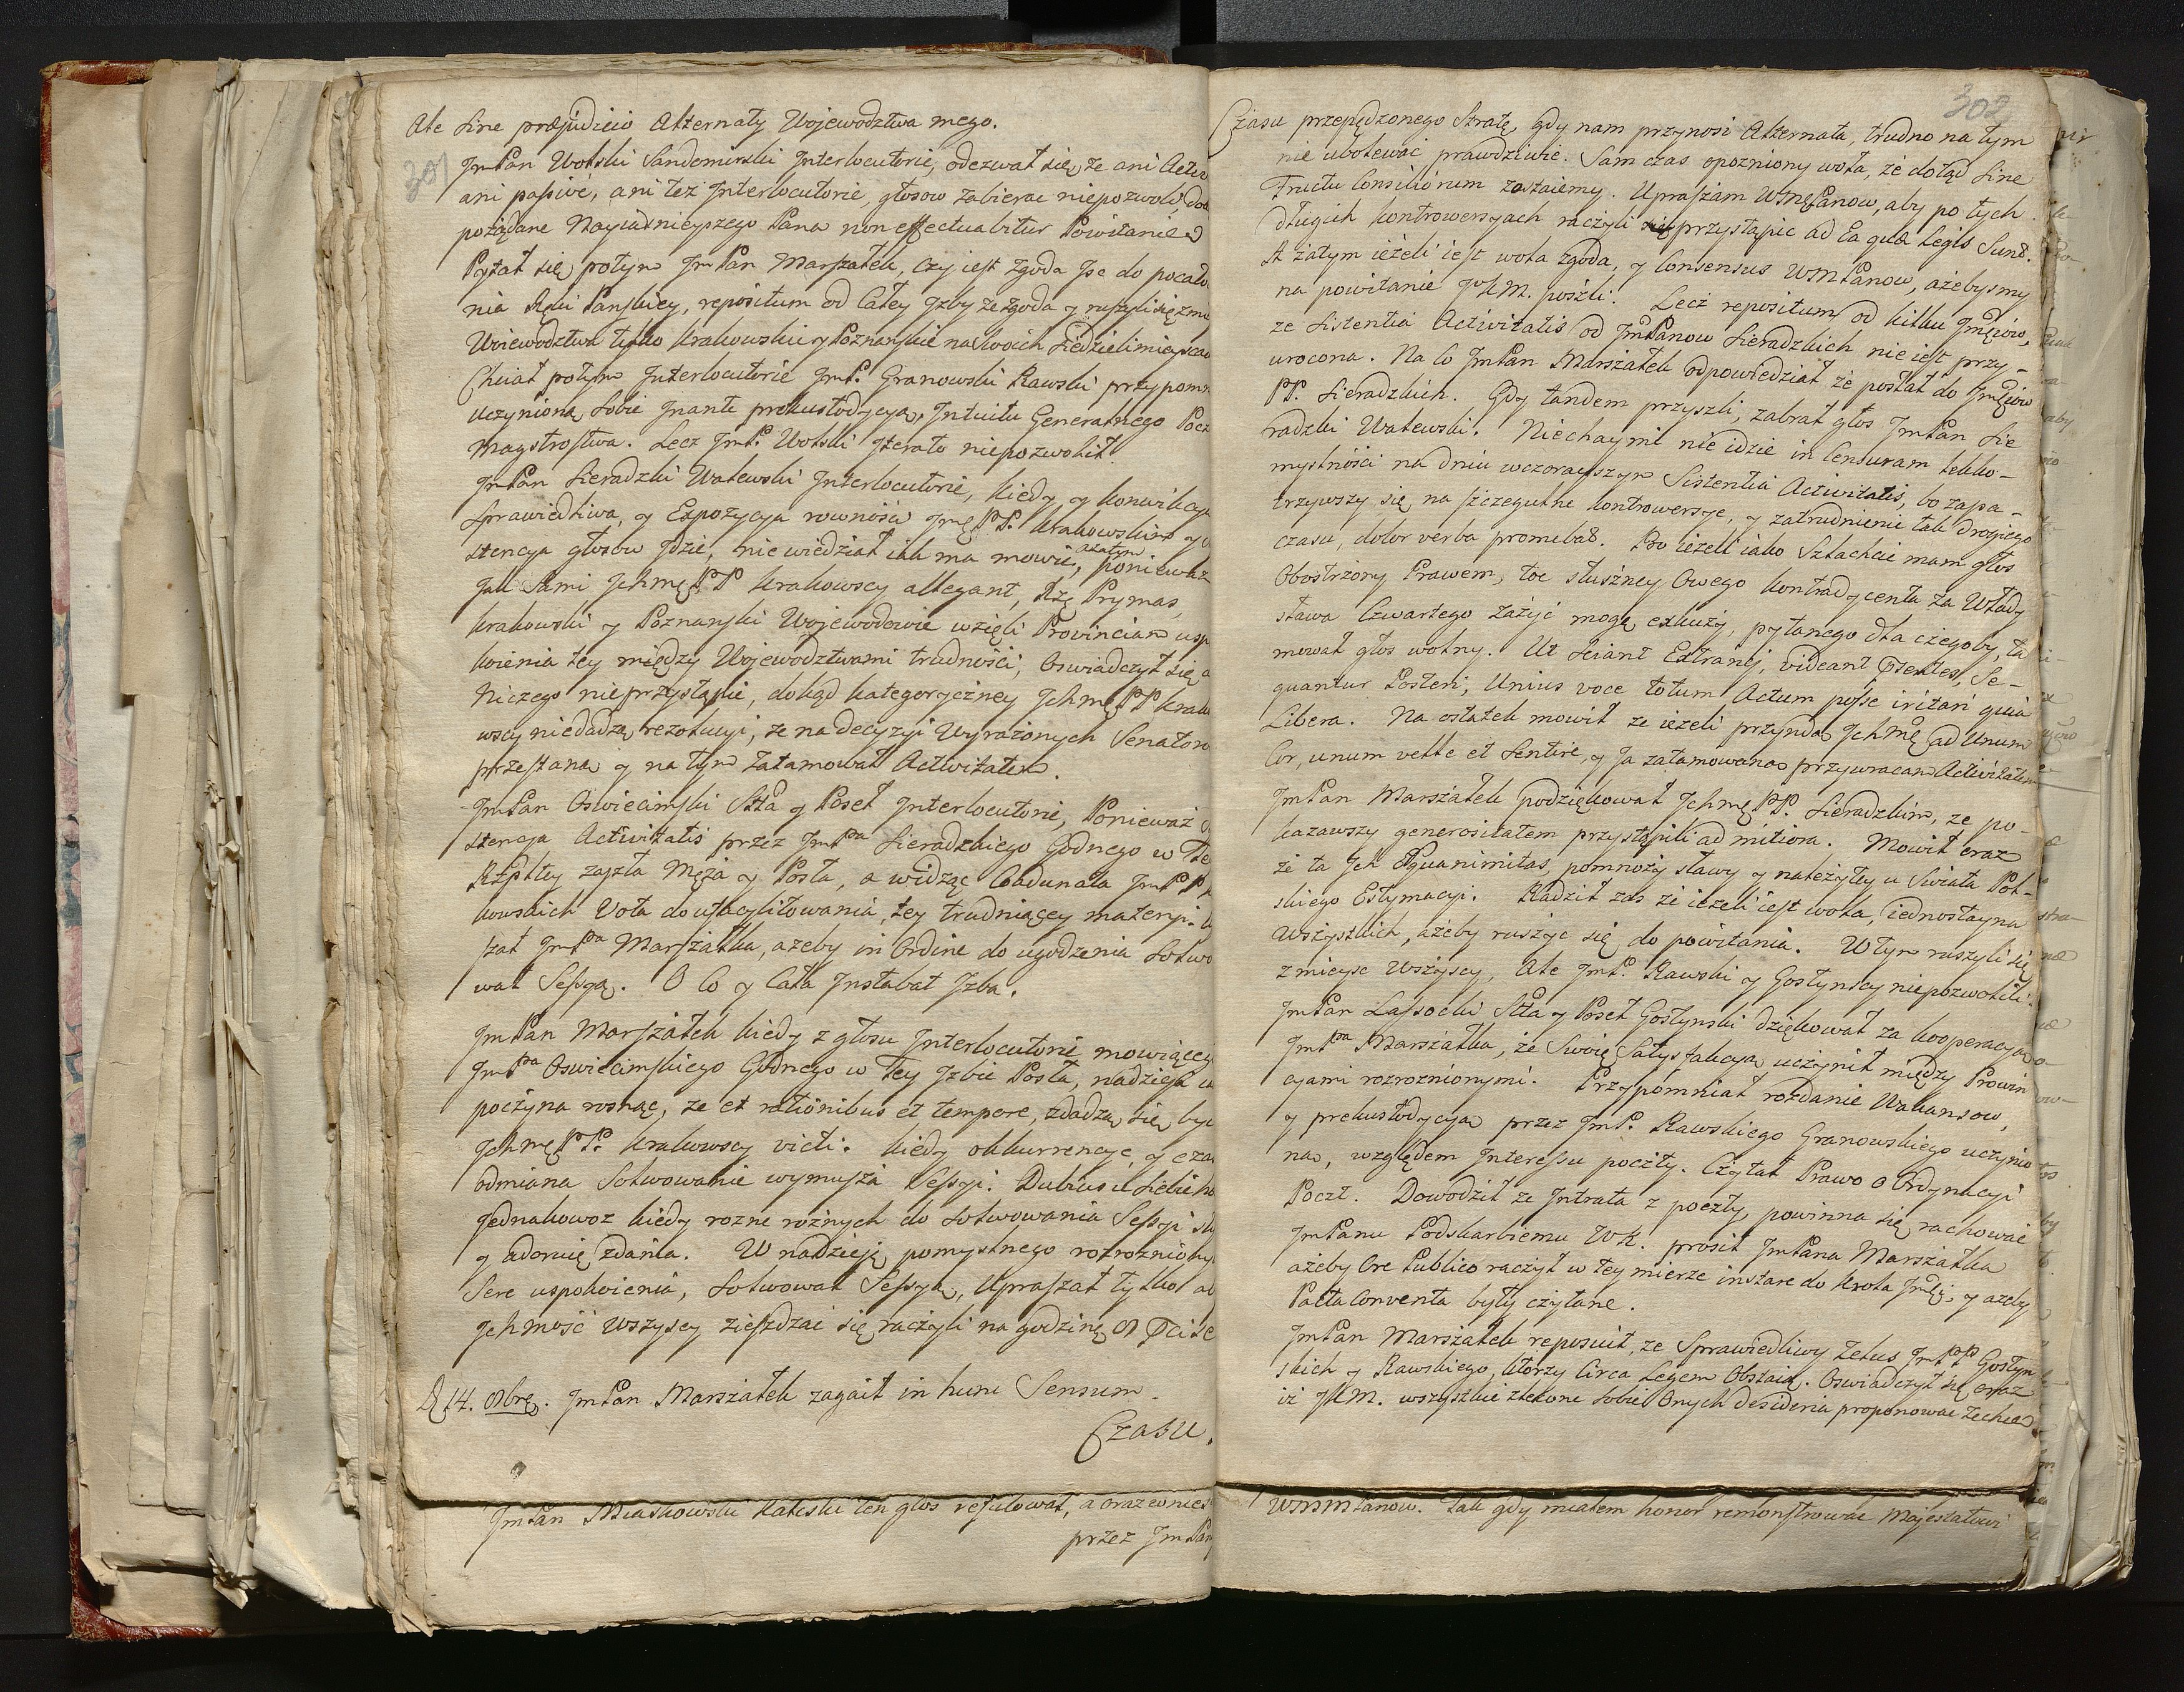 301
Ale Sine præjudicio Alternaty Wojewodztwa mego.
JmPan Wolski Sandomirski Interlocutorie, odezwał się, że ani Active
ani passivè, ani też Interlocutorie, głosow zabierac niepozwoli,
pożądane Nayiasnieyszego Pana non effectuabitur Powitanie
Pytał się potym JmPan Marszałek, czy iest zgoda Jsc do pocało
nia Ręki Panskiey, repositum od całey Jzby że zgoda y ruszyli się z mi
Woiewodztwa tylko Krakowskie y Poznanskie na swoich siedzieli mieysca
Chciał potym Interlocutorie JmP. Granowski Rawski przypomn
uczynioną sobie Jnante prekustodycyą, Jntuitu Generalnego Pocz
magstrostwa. Lecz JmP. Wolski Jterato niepozwolił
JmPan Sieradzki Walewski Interlocutorie, kiedy y konwikcya
Sprawiedliwa, y Expozycya rownosci Jmę PP. Krakowskim y
stencya głosow Jdzie, nie wiedział iak ma mowić, azatym ponieważ
Jak Sami Jchmę PP Krakowscy allegant, Xżę Prymas,
Krakowski y Poznanski Wojewodowie wzięli Provinciam usp
koienia tey między Wojewodztwami trudności, Oswiadczył się
Niczego nieprzystąpić, dokąd kategoryczney Jchmę PP Krak
wscy niedadzą rezolucyi, że na decyzyi Wyrażonych Senatoro
przestaną y na tym zatamował Activitatem.
JmPan Oswiecimski Stta y Poseł Interlocutorie, Ponieważ
stencya Activitatis przez JmPa Sieradzkiego Godnego w
Rzpltey zaszła Męża y Posła, a widząc Coadunata JmPP
kowskich Vota do ufacylitowania, tey trudniącey materyi.
szał JmPa Marszałka, ażeby in Ordine do ugodzenia Solwo
wał Sessyą. O Co y Cała Jnstabat Jzba.
JmPan Marszałek kiedy z głosu Interlocutorie mowiącego
JmPa Oswiecimskiego Godnego w Tey Jzbie Posła, nadzieja
poczyna rosnąc, że et rationibus et tempore, zdadzą się byc
Jchmę PP. Krakowscy victi. kiedy okkurrencye, y cza
odmiana Solwowanie wymusza Sessyi. Dubius u siebie
Jednakowoz kiedy rozne rożnych do Solwowania Sessyi
y adoruię zdania. W nadzieję pomyslnego rozroznion
Sere uspokoienia, Solwował Sessyą, Upraszał tylko a
Jchmość wszyscy zieżdzać się raczyli na godzinę
D. 14. 8brę. JmPan Marszałek zagaił in hunc Sensum.
Czasu.
JmPan Miaskowski Kaliski ten głos refutował, a oraz
przez JmPan
302
Czasu przepędzonego Stratę, Gdy nam przynosi Alternata, trudno na tym
nie ubolewać prawdziwie. Sam czas opozniony woła, że dotąd Sine
Fructu Consiliorum zostaiemy. Upraszam WMę Panow, aby po tych
długich kontrowersyach raczyli przystąpic ad Ea quæ Legis Sunt.
A zatym ieżeli iest wola zgoda, y Consensus WM Panow, ażebysmy
na powitanie JKM. poszli. Lecz repositum od kilku Jmęciow,
ze Sistentia Activitatis od JmPanow Sieradzkich nie iest przy-
wrocona. Na Co JmPan Marszałek odpowiedział że posłał do Jmęciow
PP. Sieradzkich. Gdy tandem przyszli, zabrał głos JmPan Sie
radzki Walewski. Niechaymi nie idzie in Censuram lekko-
myslności na dniu wczorayszym Sistentia Activitatis, bo zapa-
trzywszy się na szczegulne kontrowersye, y zatrudnienie tak drogiego
czasu, dolor verba promebat. Bo ieżeli iako Szlachcic mam głos
Obostrzony Prawem, toc słuszney Owego kontradycenta za Włady
sława Czwartego zażyć mogę exkuzy, pytanego dla czegoby, ta
mował głos wolny. Ut Sciant Extranei, videant Psentes, Se-
quantur Posteri, Unius voce totum Actum posse iritari quia
Libera. Na ostatek mowił że ieżeli przyndą Jchmę ad Unum
Cor, unum velle et Sentire, y Ja zatamowaną przywracam Activitatem
JmPan Marszałek podziękował Jchmę PP. Sieradzkim, że po-
kazawszy generositatem przystąpili ad mitiora. Mowił oraz
że ta Jch Æquanimitas, pomnoży sławy y należytey u Swiata Pol-
skiego Estymacyi. Radził zas że ieżeli iest wola, iednostayna
Wszystkich, ażeby ruszyc się do powitania. W tym ruszyli się
z mieysc wszyscy, Ale JmP. Rawski y Gostynscy niepozwolili.
JmPan Lassocki Stta y Poseł Gostynski dziękował za kooperacyą
JmPa Marszałka, że Swoię Satysfakcyą uczynił między Prowin
cyami rozroznionymi. Przypomniał rozdanie Wakansow,
y prekustodycyą przez JmP. Rawskiego Granowskiego uczynio
ną, względem Interessu poczty. Czytał Prawo o Ordynacyi
Poczt. Dowodził że Jntrata z poczty, powinna się rachować
JmPanu Podskarbiemu WK. prosił JmPana Marszałka
ażeby Ore Publico raczył w tey mierze instare do Krola Jmci, y ażeby
Pacta Conventa były czytane.
JmPan Marszałek reposuit, że Sprawiedliwy Zelus JmPP Gostyn
skich y Rawskiego, ktorzy Circa Legem Obstaią. Oswiadczył się oraz
iż JKM. wszystkie zlecone sobie Onych desideria proponować zechce
WMMPanow. Jak gdy miałem honor remonstrować Majestatowi